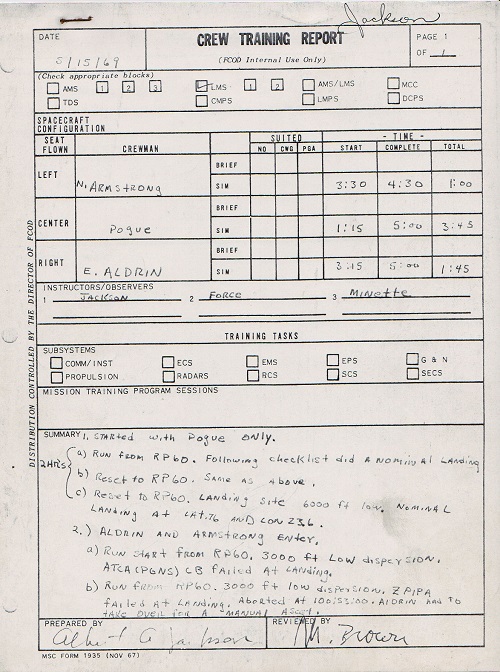 Jackson
DATE
5/15/69
CREW TRAINING REPORT
(FCOD Internal Use Only)
PAGE 1
OF 1
(Check appropriate blocks)
AMS 1 2 3 LMS 1 2 AMS/LMS MCC
TDS CMPS LMPS DCPS
SPACECRAFT
CONFIGURATION
SEAT FLOWN CREWMAN SUITED NO CWG PGA - TIME - START COMPLETE TOTAL
LEFT BRIEF
N. ARMSTRONG SIM 3:30 4:30 1:00
CENTER BRIEF
Pogue SIM 1:15 5:00 3:45
RIGHT BRIEF
E. ALDRIN SIM 3:15 5:00 1:45
INSTRUCTORS/OBSERVERS
1 JACKSON 2 FORCE 3 Minette
TRAINING TASKS
SUBSYSTEMS
COMM/INST ECS EMS EPS G & N
PROPULSION RADARS RCS SCS SECS
MISSION TRAINING PROGRAM SESSIONS
SUMMARY 1. STARTED with Pogue ONLY.
2HRS a) RUN FROM RP60. Following checklist did a NOMINAL LANDING
b) Reset to RP60. Same as above.
c) Reset to RP60. LANDING Site 6000 ft low. NOMINAL
LANDING AT LAT.76 AND LON 23.6.
2.) ALDRIN AND ARMSTRONG ENTER.
a) RUN START FROM RP60. 3000 ft LOW dispersion.
ATCA (PGNS) CB FAILED At LANDING.
b) RUN FROM RP60. 3000 ft low dispersion. Z PIPA
failed At LANDING. Aborted At 102:33:00. Aldrin had to
take over for a manual ascent.
PREPARED BY
Albert A Jackson
REVIEWED BY
Brown
MSC FORM 1935 (NOV 67)
DISTRIBUTION CONTROLLED BY THE DIRECTOR OF FCOD